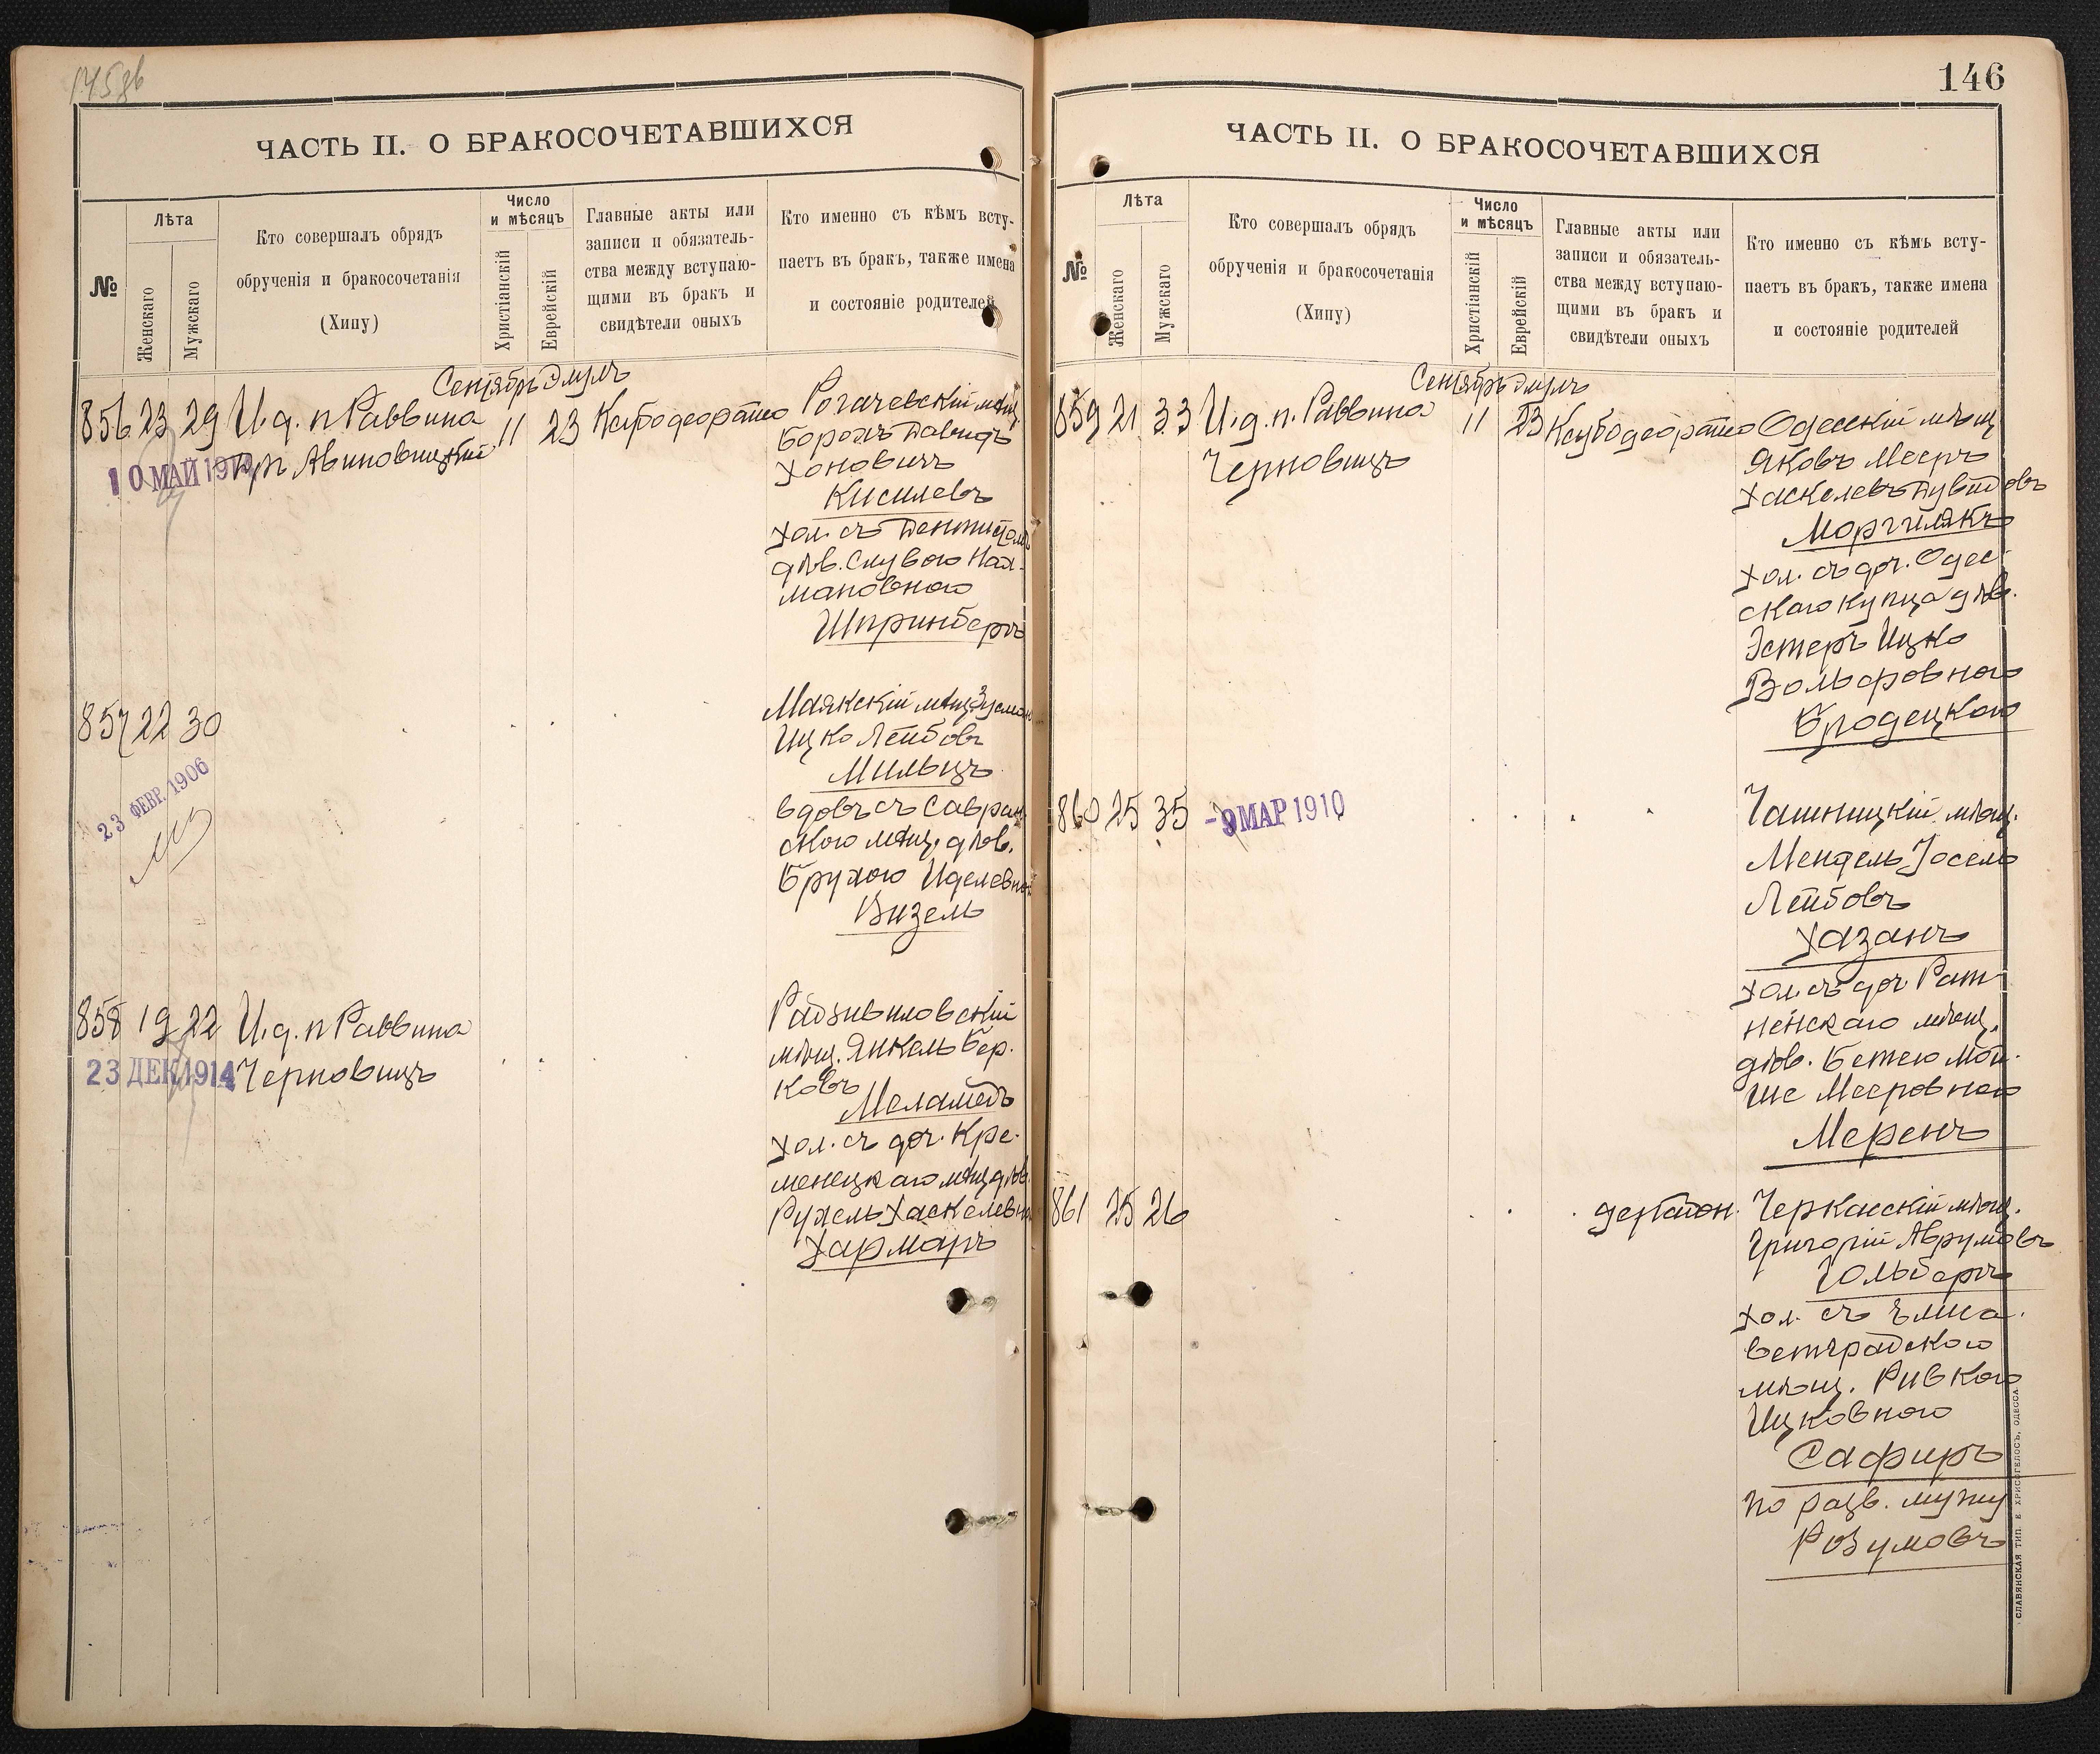 145 об
ЧАСТЬ II. О БРАКОСОЧЕТАВШИХСЯ
№
Лѣта
Женскаго
Мужскаго
Кто совершалъ обрядъ
обрученія и бракосочетанія
(Хипу)
Число
и мѣсяцъ
Христіанскій
Еврейскій
Главные акты или
записи и обязатель-
ства между вступаю-
щими въ бракъ и
свидѣтели оныхъ
Кто именно съ кѣмъ всту-
паетъ въ бракъ, также имена
и состояніе родителей
Сентябрь Элулъ
856 23 29 И. д. п Раввина 11 23 Рогачевскій мѣщ
Авиновицкій
10 МАЙ 191
Борохъ Давидъ
Хоновичъ
Киселевъ
хол. съ
дѣв. Слувою Нах-
мановною
Шпринбергъ
857 22 30
Маякскій мѣщ. Зусман
Ицко Лейбовъ
Мильцъ
23 ФЕВР. 1906
вдовъ съ Савран
ской мѣщ. дѣв.
Брухою Иделевной
Визель
858 19 22 И. д. п Раввина
Черновицъ
23 ДЕК 1914
Радзивиловскій
мѣщ. Янкель Бер-
ковъ
Меламедъ
хол. съ доч. Кре-
менецкаго мѣщ дѣв.
Рухель Хаскелевно
Хармацъ
146
ЧАСТЬ II. О БРАКОСОЧЕТАВШИХСЯ
№
Лѣта
Женскаго
Мужскаго
Кто совершалъ обрядъ
обрученія и бракосочетанія
(Хипу)
Число
и мѣсяцъ
Христіанскій
Еврейскій
Главные акты или
записи и обязатель-
ства между вступаю-
щими въ бракъ и
свидѣтели оныхъ
Кто именно съ кѣмъ всту-
паетъ въ бракъ, также имена
и состояніе родителей
Сентябрь Элулъ
859 21 33 И. д. п. Раввина 11 23 Одесскій мѣщ
Черновицъ
Яковъ Мееръ
Хаскелевъ Дувидовъ
Моргулякъ
хол. съ доч. Одес-
скаго купца дѣв.
Эстеръ Ицко
Вольфовною
Бродецкою
860 25 35 -9 МАР 1910
Чашницкій мѣщ.
Мендель Іосель
Лейбовъ
Хазанъ
хол. съ доч Рат-
ненскаго мѣщ.
дѣв. Бетею Мой-
ше Мееровною
Меренъ
861 25 26
Черкасскій мѣщ.
Григорій Аврумовъ
Гольбергъ
хол. съ Елиса-
ветградскою
мѣщ. Ривкою
Ицковною
Сафиръ
по разв. мужу
Розумовъ
СЛАВЯНСКАЯ ТИП. Е. ХРИСОГЕЛОСЪ, ОДЕССА.